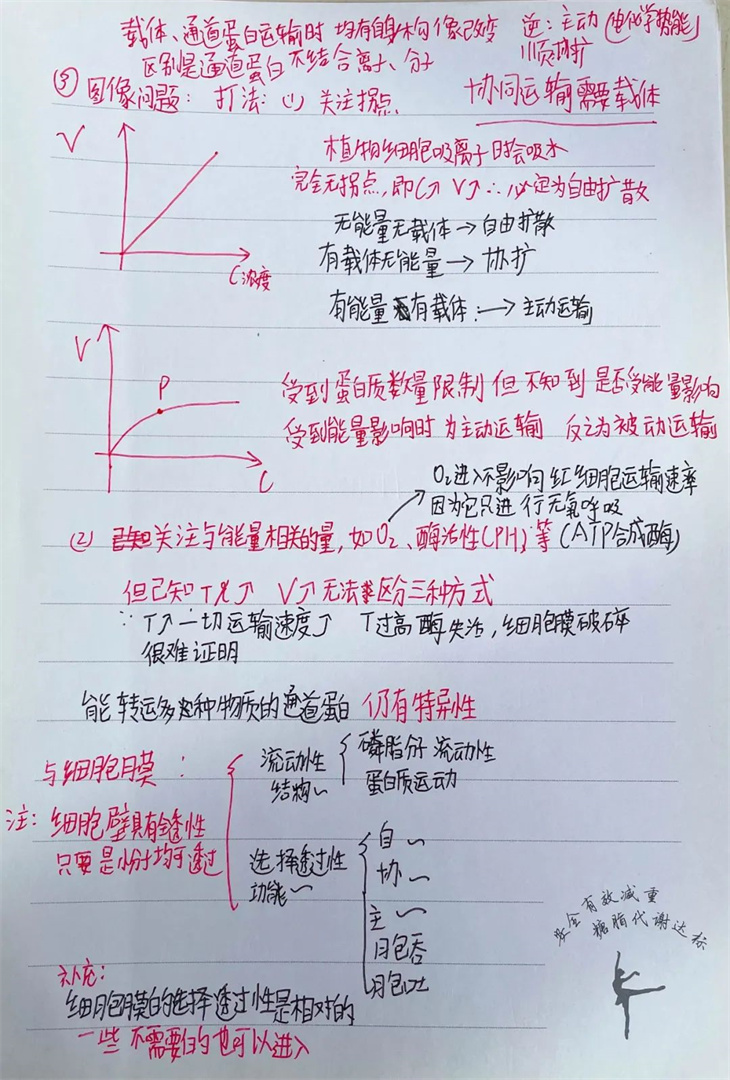 载体、通道蛋白运输时 均有自身构像改变
区别是通道蛋白不结合离子、分子
逆:主动(电化学势能)
顺:协扩
③ 图像问题: 打法: (1) 关注拐点
协同运输需要载体
V
C浓度
植物细胞吸离子时会吸水
完全无拐点,即C↑ V↑ ∴必定为自由扩散
无能量无载体→自由扩散
有载体无能量→协扩
有能量有载体:→主动运输
V
P
C
受到蛋白质数量限制 但不知到是否受能量影响
受到能量影响时为主动运输 反之为被动运输
O₂进入不影响红细胞运输速率
因为它只进行无氧呼吸
(2) 关注与能量相关的量,如O₂、酶活性(PH)等(ATP合成酶)
但已知T↑ V↑无法区分三种方式
∵T↑一切运输速度↑ T过高酶失活,细胞膜破碎
很难证明
能转运多种物质的通道蛋白 仍有特异性
与细胞膜:
流动性
结构~
磷脂分子流动性
蛋白质运动
注:细胞壁具有全透性
只要是小分子均可透过
选择透过性
功能~
自~
协~
主~
胞吞
胞吐
补充:
细胞膜的选择透过性是相对的
一些不需要的也可以进入
安全有效减重
糖脂代谢达标